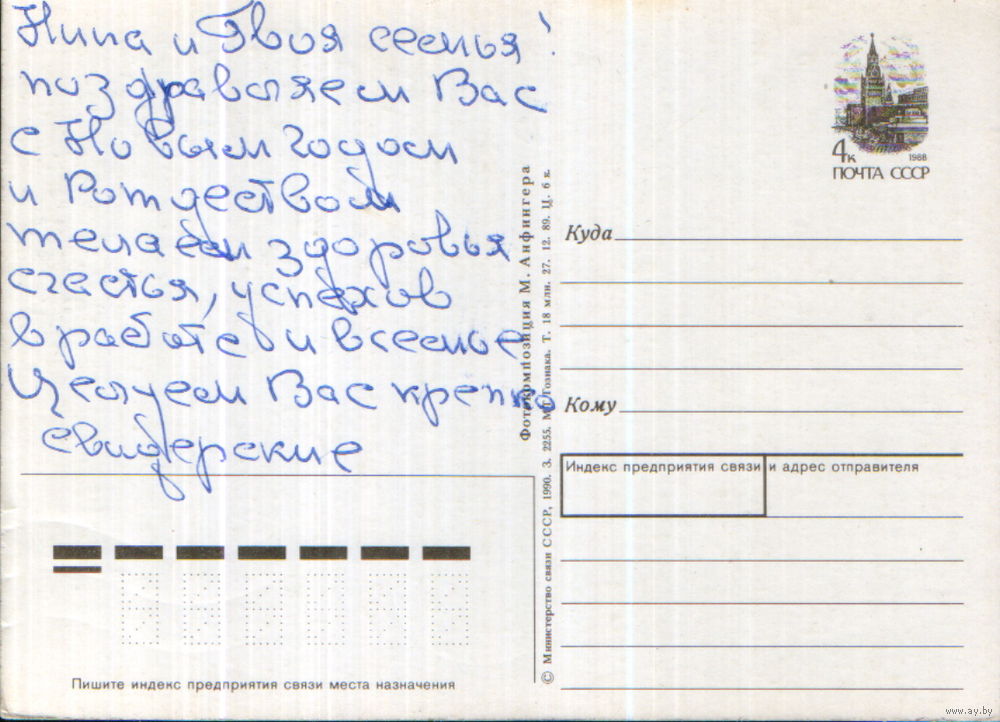 Нина и Твоя семья!
поздравляем Вас
с Новым годом
и Рождеством
желаем здоровья
счастья, успехов
в работе и в семье
Целуем Вас крепко
Свидерские
4к
1988
ПОЧТА СССР
Куда
Кому
Индекс предприятия связи и адрес отправителя
Фотокомпозиция М. Анфингера
© Министерство связи СССР, 1990. З. 2255. МТ Гознака. Т. 18 млн. 27. 12. 89. Ц. 6 к.
Пишите индекс предприятия связи места назначения
www.ay.by